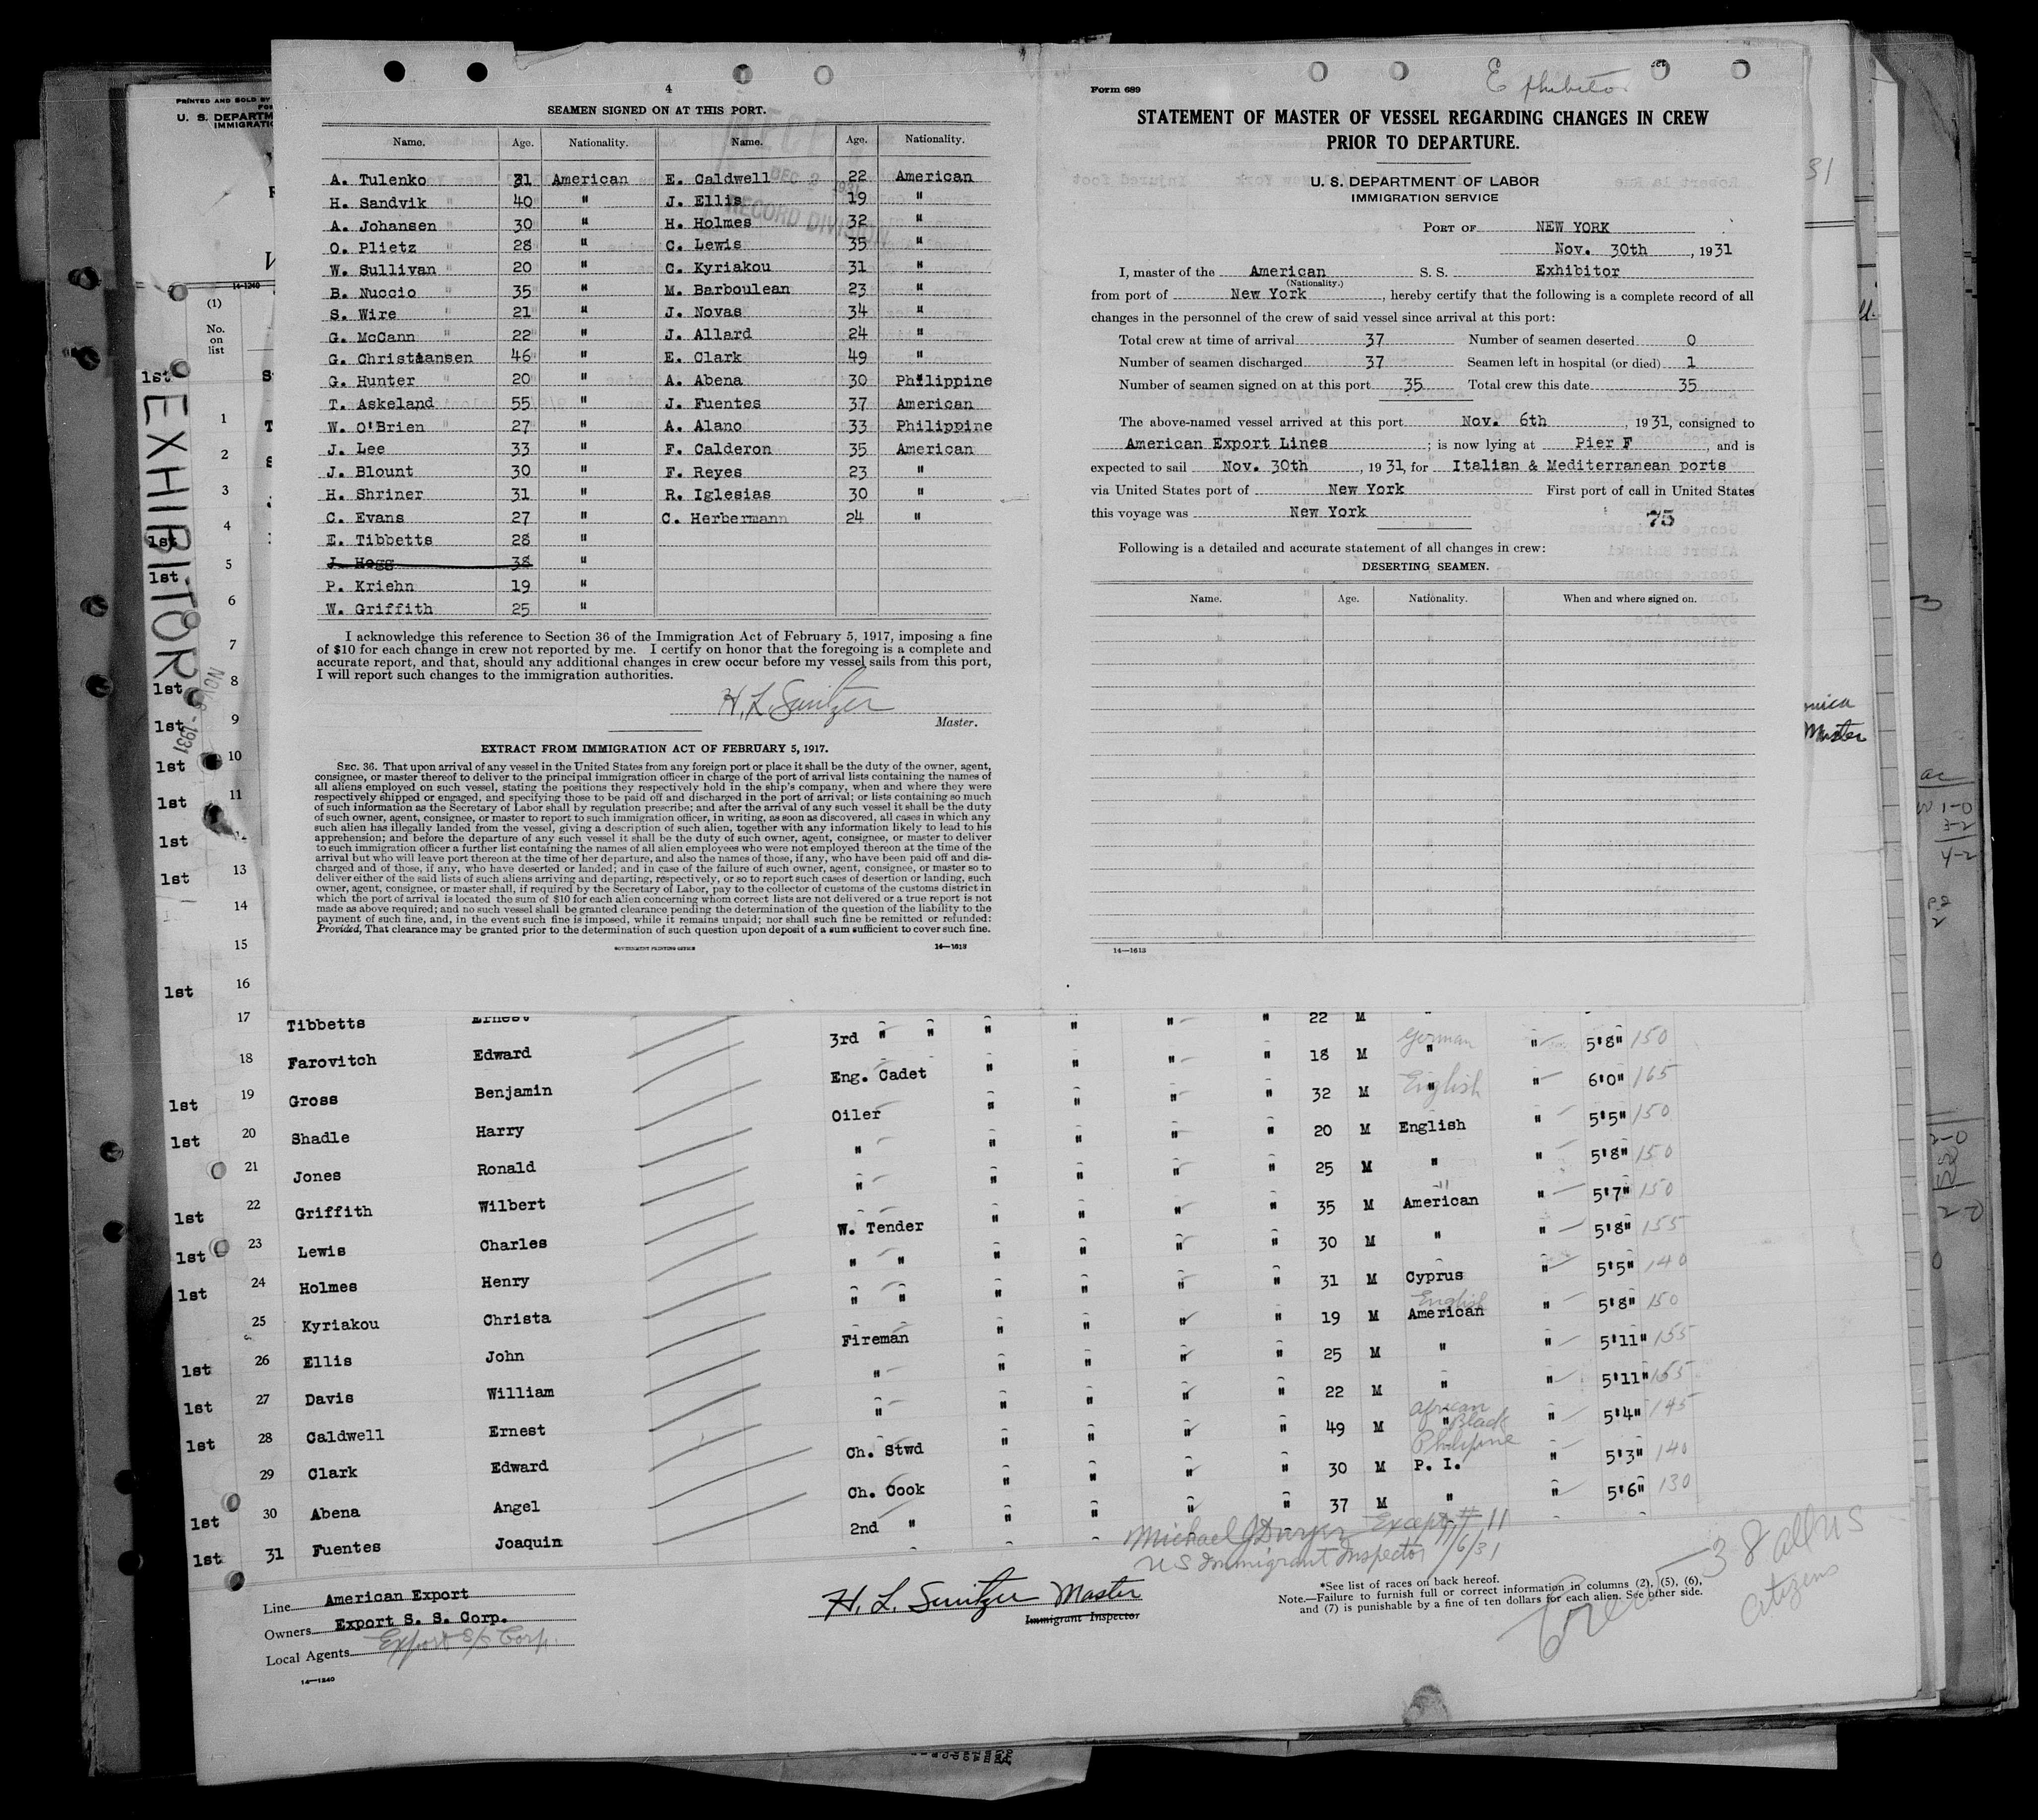 4
SEAMEN SIGNED ON AT THIS PORT.
Name. Age. Nationality. Name. Age. Nationality.
A. Tulenko 31 American E. Caldwell 22 American
H. Sandvik 40 " J. Ellis 19 "
A. Johansen 30 " H. Holmes 32 "
O. Plietz 28 " C. Lewis 35 "
W. Sullivan 20 " C. Kyriakou 31 "
B. Nuccio 35 " M. Barboulean 23 "
S. Wire 21 " J. Novas 34 "
G. McCann 22 " J. Allard 24 "
G. Christiansen 46 " E. Clark 49 "
G. Hunter 20 " A. Abena 30 Philippine
T. Askeland 55 " J. Fuentes 37 American
W. O'Brien 27 " A. Alano 33 Philippine
J. Lee 33 " F. Calderon 35 American
J. Blount 30 " F. Reyes 23 "
H. Shriner 31 " R. Iglesias 30 "
C. Evans 27 " C. Herbermann 24 "
E. Tibbetts 28 "
J. Hogg 38 "
P. Kriehn 19 "
W. Griffith 25 "
DEC 1931
RECORD DIVISION
I acknowledge this reference to Section 36 of the Immigration Act of February 5, 1917, imposing a fine
of $10 for each change in crew not reported by me. I certify on honor that the foregoing is a complete and
accurate report, and that, should any additional changes in crew occur before my vessel sails from this port,
I will report such changes to the immigration authorities.
Master.
EXTRACT FROM IMMIGRATION ACT OF FEBRUARY 5, 1917.
SEC. 36. That upon arrival of any vessel in the United States from any foreign port or place it shall be the duty of the owner, agent,
consignee, or master thereof to deliver to the principal immigration officer in charge of the port of arrival lists containing the names of
all aliens employed on such vessel, stating the positions they respectively hold in the ship's company, when and where they were
respectively shipped or engaged, and specifying those to be paid off and discharged in the port of arrival; or lists containing so much
of such information as the Secretary of Labor shall by regulation prescribe; and after the arrival of any such vessel it shall be the duty
of such owner, agent, consignee, or master to report to such immigration officer, in writing, as soon as discovered, all cases in which any
such alien has illegally landed from the vessel, giving a description of such alien, together with any information likely to lead to his
apprehension; and before the departure of any such vessel it shall be the duty of such owner, agent, consignee, or master to deliver
to such immigration officer a further list containing the names of all alien employees who were not employed thereon at the time of the
arrival but who will leave port thereon at the time of her departure, and also the names of those, if any, who have been paid off and dis-
charged and of those, if any, who have deserted or landed; and in case of the failure of such owner, agent, consignee, or master so to
deliver either of the said lists of such aliens arriving and departing, respectively, or so to report such cases of desertion or landing, such
owner, agent, consignee, or master shall, if required by the Secretary of Labor, pay to the collector of customs of the customs district in
which the port of arrival is located the sum of $10 for each alien concerning whom correct lists are not delivered or a true report is not
made as above required; and no such vessel shall be granted clearance pending the determination of the question of the liability to the
payment of such fine, and, in the event such fine is imposed, while it remains unpaid; nor shall such fine be remitted or refunded:
Provided, That clearance may be granted prior to the determination of such question upon deposit of a sum sufficient to cover such fine.
GOVERNMENT PRINTING OFFICE 14—1613
Form 689
STATEMENT OF MASTER OF VESSEL REGARDING CHANGES IN CREW
PRIOR TO DEPARTURE.
U. S. DEPARTMENT OF LABOR
IMMIGRATION SERVICE
PORT OF NEW YORK
Nov. 30th, 1931
I, master of the American S. S. Exhibitor
(Nationality.)
from port of New York, hereby certify that the following is a complete record of all
changes in the personnel of the crew of said vessel since arrival at this port:
Total crew at time of arrival 37 Number of seamen deserted 0
Number of seamen discharged 37 Seamen left in hospital (or died) 1
Number of seamen signed on at this port 35 Total crew this date 35
The above-named vessel arrived at this port Nov. 6th, 1931, consigned to
American Export Lines; is now lying at Pier F, and is
expected to sail Nov. 30th, 1931, for Italian & Mediterranean ports
via United States port of New York First port of call in United States
this voyage was New York
75
Following is a detailed and accurate statement of all changes in crew:
DESERTING SEAMEN.
Name. Age. Nationality. When and where signed on.
14—1613
PRINTED AND SOLD BY
U. S. DEPARTM
IMMIGRATIC
14-1240
(1)
No.
on
list
EXHIBITOR
NOV 6 - 1931
1st
1
2
3
4
1st
5
1st
6
7
1st 8
1st 9
1st 10
1st 11
1st
1st 13
14
15
1st 16
17 Tibbetts Ernest 3rd " " " " " " 22 M " " 5'8" 150
18 Farovitch Edward Eng. Cadet " " " " 18 M German " " 6'0" 165
1st 19 Gross Benjamin Oiler " " " " 32 M English " " 5'5" 150
1st 20 Shadle Harry " " " " " 20 M English " 5'8" 150
21 Jones Ronald " " " " " 25 M " " 5'7" 150
1st 22 Griffith Wilbert W. Tender " " " " 35 M American " 5'8" 155
1st 23 Lewis Charles " " " " " " 30 M " " 5'5" 140
1st 24 Holmes Henry " " " " " " 31 M Cyprus " 5'8" 150
25 Kyriakou Christa Fireman " " " " 19 M English American " 5'11" 155
1st 26 Ellis John " " " " " 25 M " " 5'11" 165
1st 27 Davis William " " " " " 22 M " " 5'4" 145
1st 28 Caldwell Ernest Ch. Stwd " " " " 49 M African " Black " 5'3" 140
29 Clark Edward Ch. Cook " " " " 30 M Philipine P. I. " 5'6" 130
1st 30 Abena Angel 2nd " " " " " 37 M " "
1st 31 Fuentes Joaquin
Except # 11
US Immigrant Inspector 11/6/31
Line American Export
Owners Export S. S. Corp.
Local Agents Export S/S Corp.
14—1240
Master
Immigrant Inspector
*See list of races on back hereof.
Note.—Failure to furnish full or correct information in columns (2), (5), (6),
and (7) is punishable by a fine of ten dollars for each alien. See other side.
38 all US
citizens
31
Master